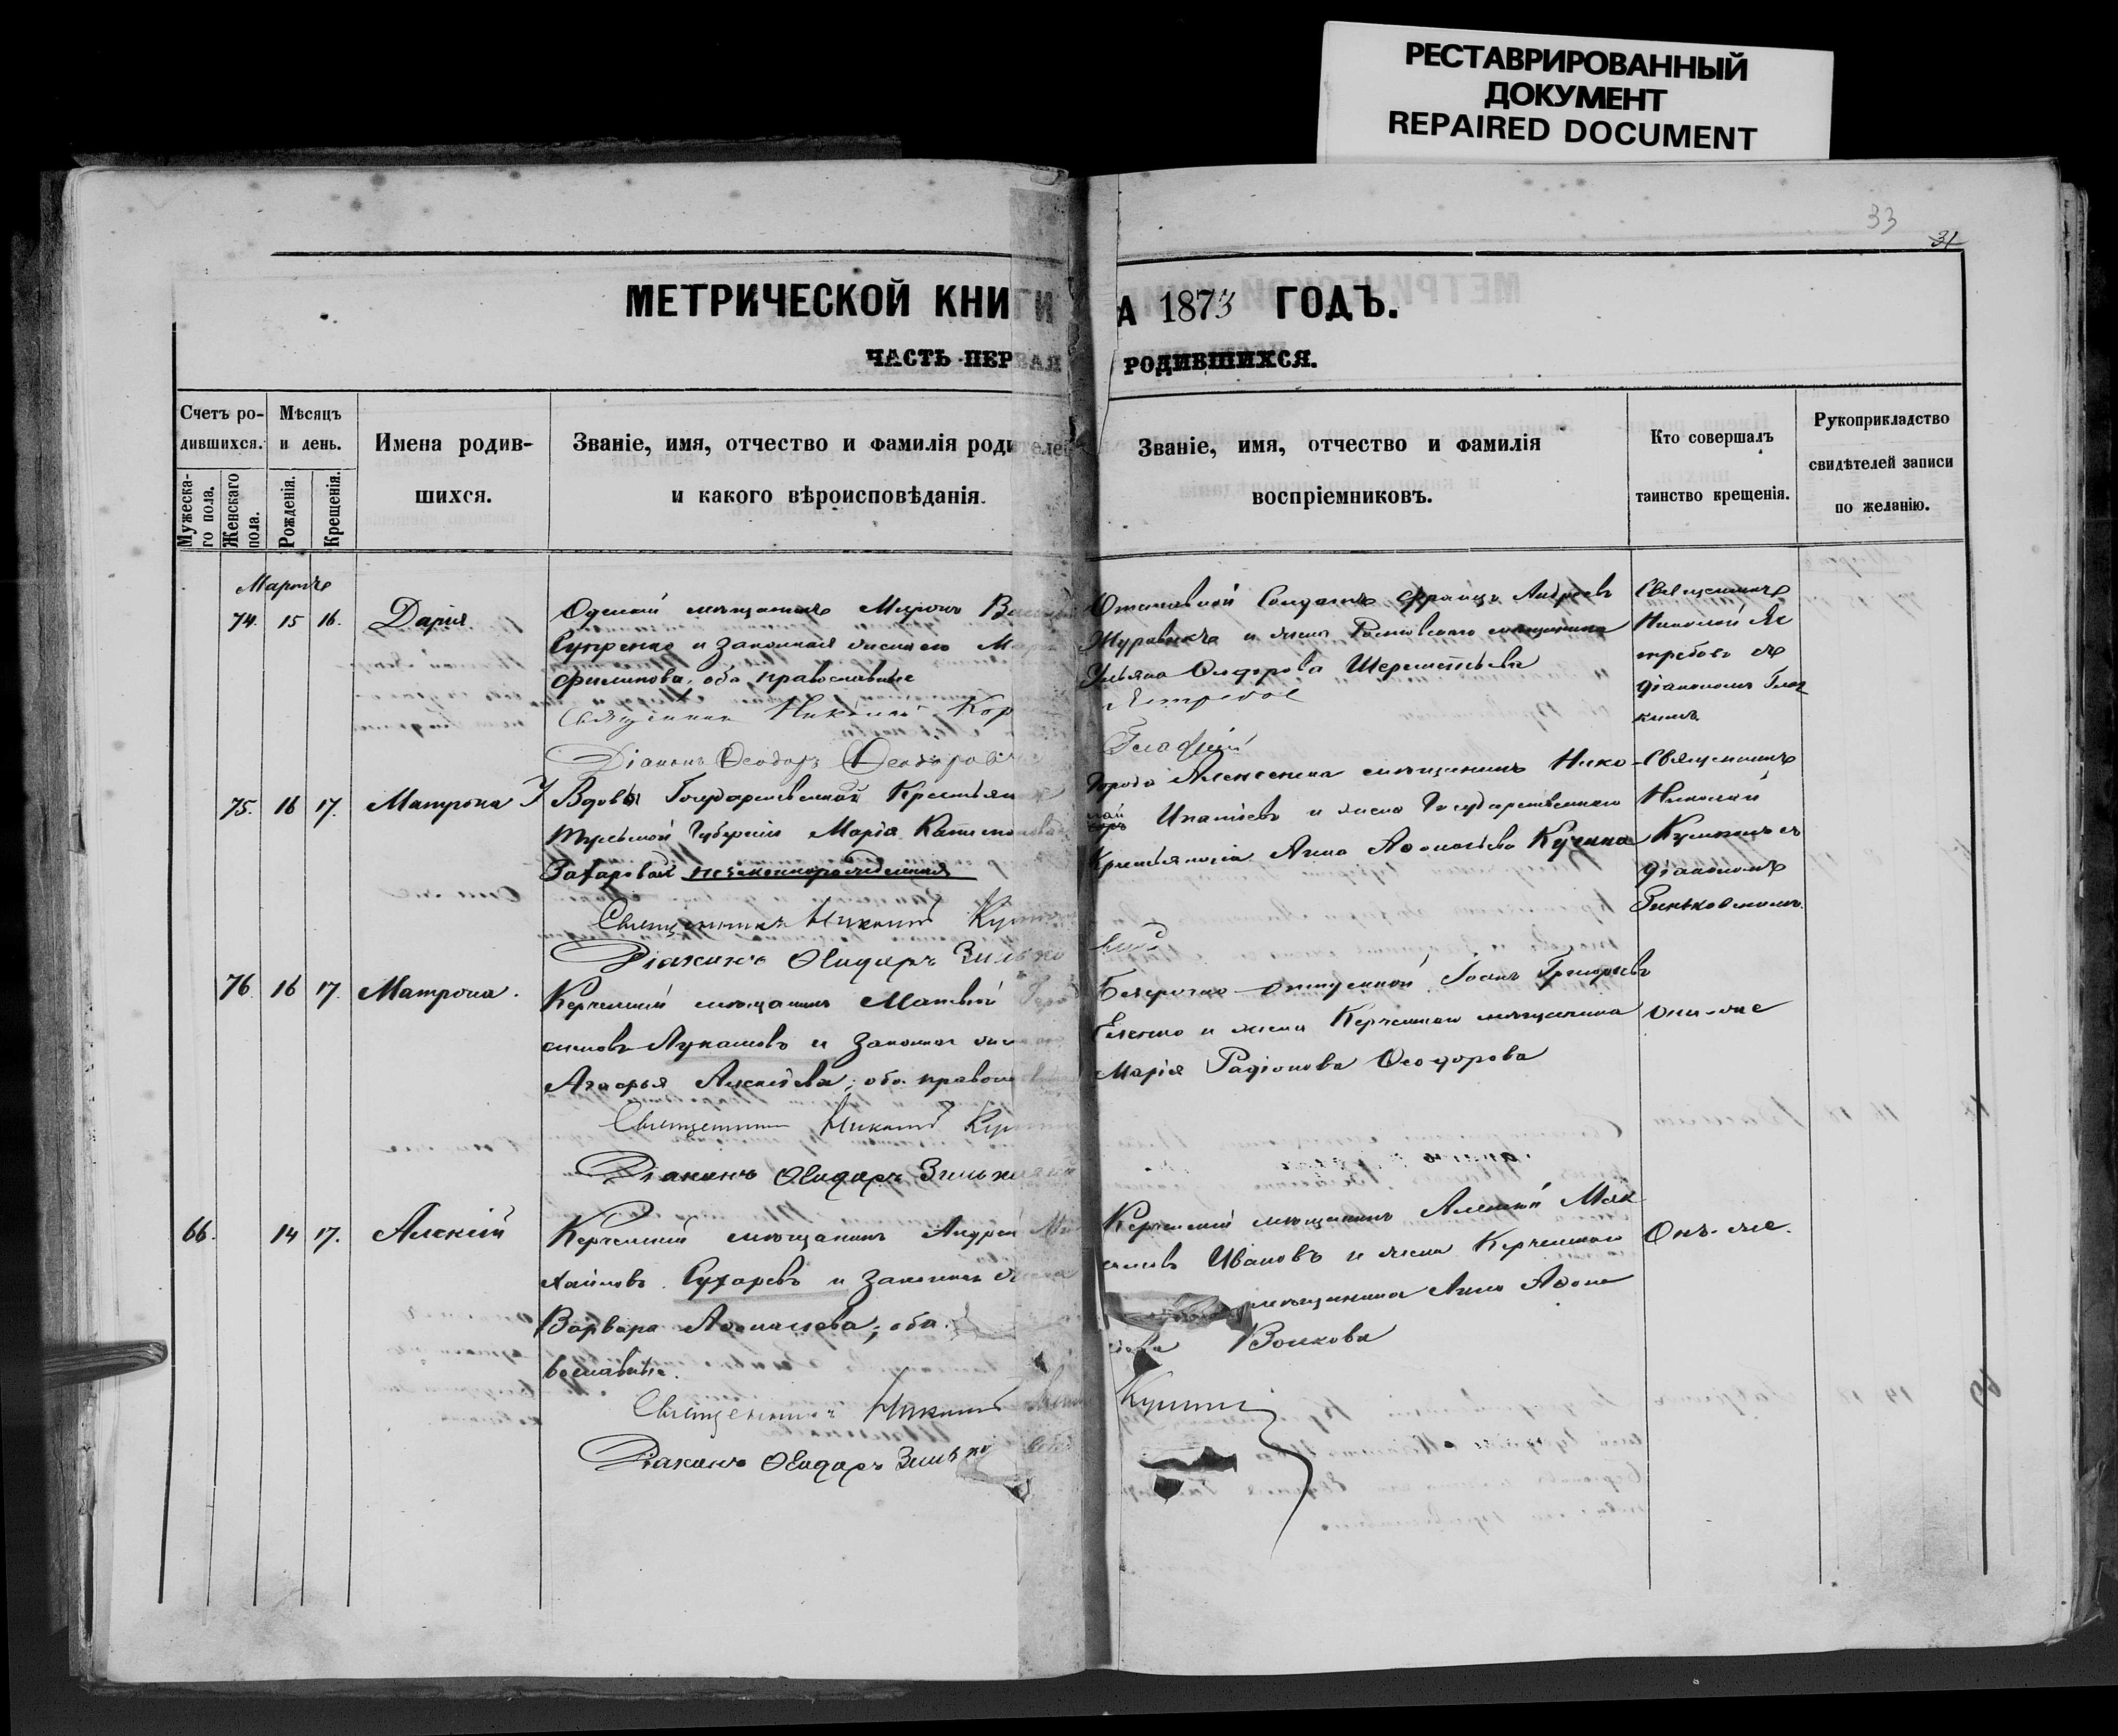 РЕСТАВРИРОВАННЫЙ
ДОКУМЕНТ
REPAIRED DOCUMENT
33
31
МЕТРИЧЕСКОЙ КНИГИ
А 1873 ГОДЪ.
ЧАСТЬ ПЕРВАЯ
РОДИВШИХСЯ.
Счетъ ро-
дившихся.
Мужеска-
го пола.
Женскаго
пола.
Мѣсяцъ
и день.
Рожденія.
Крещенія.
Имена родив-
шихся.
Званіе, имя, отчество и фамилія родителей
и какого вѣроисповѣданія.
Званіе, имя, отчество и фамилія
воспріемниковъ.
Кто совершалъ
таинство крещенія.
Рукоприкладство
свидѣтелей записи
по желанію.
Мартъ
74. 15 16. Дарія
Одескій мѣщанинъ Миронъ
Супренко и законная жена его
Филипова, оба православные
Священникъ Николай
Діаконъ Ѳеодоръ
Отставной Солдатъ Францъ Андреевъ
Журавичъ и жена Ростовскаго мѣщанина
Ульяна Ѳедорова Шереметьева
Ястребовъ
Священникъ
Николай Яс
требовъ съ
діакономъ
75. 16 17. Матрона У
Вдовы Государственной Крестьянки
Губерніи Марія
Захаровой незаконнорожденная
Священникъ Никита
Діаконъ Ѳеодоръ Зинько
Города Алексина мѣщанинъ Нико-
лай Ипатіевъ и жена Государственнаго
Крестьянина Анна Аѳонасьева Кучина
Священникъ
діакономъ
Зиньковскимъ.
76. 16 17. Матрона.
Керченскій мѣщанинъ Матвѣй
симовъ Лукашовъ и законная жена его
Агафья Алексѣева, оба православные
Священникъ Никита
Діаконъ Ѳеодоръ Зинько
Безсрочно-отпускной Іоанъ Григорьевъ
и жена Керченскаго мѣщанина
Марія Радіонова Ѳеодорова
Они-же
66. 14 17. Алексій
Керченскій мѣщанинъ Андрей Ми
хайловъ Сухаревъ и законная жена
Варвара Аѳонасьева; оба
вославные.
Священникъ Никита
Діаконъ Ѳеодоръ Зинько
Керченскій мѣщанинъ Алексій Мак
симовъ Ивановъ и жена Керченскаго
мѣщанина Анна Аѳона
сьева Волкова
Онъ-же.